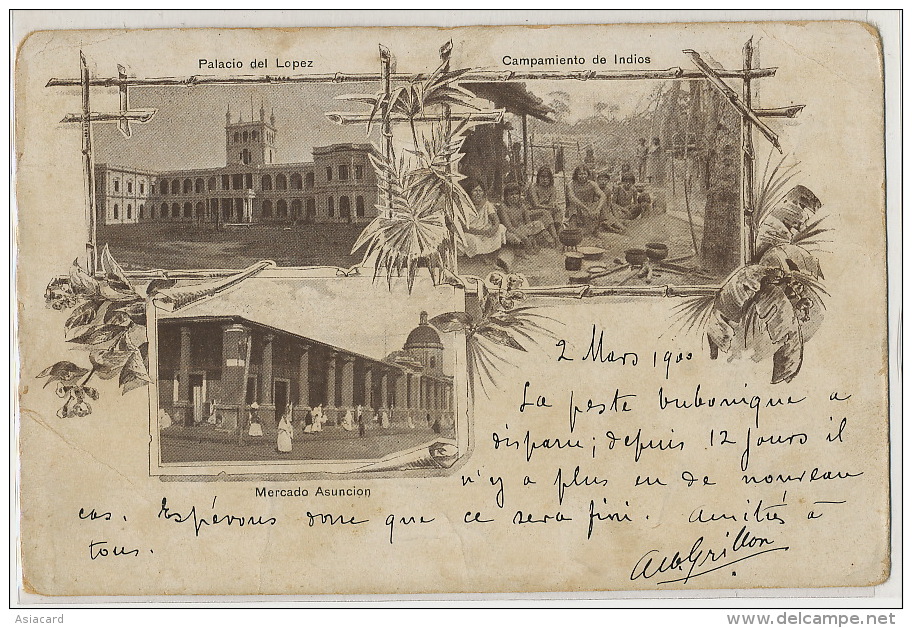 Palacio del Lopez
Campamiento de Indios
Mercado Asuncion
2 Mars 1900
La peste bubonique a
disparu; depuis 12 jours il
n'y a plus eu de nouveau
cas. Espérons donc que ce sera fini. Amitiés à
tous.
Alb. Grillon
Asiacard
www.delcampe.net